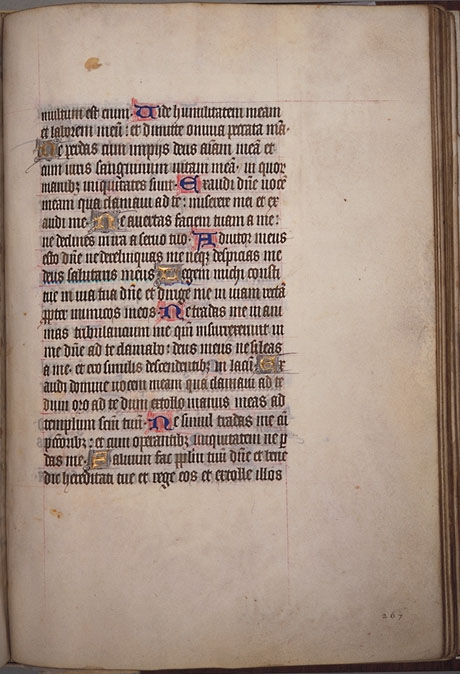 multum est enim Vide humilitatem meam
et laborem meū: et dimitte omnia peccata mā.
Ne perdas cum impijs deus aīam meā et
cum viris sanguinum vitam meā. in quor
manibȝ iniquitates sunt Exaudi dn̄e vocē
meam qua clamaui ad te: miserere mei et ex
audi me. Ne auertas faciem tuam a me:
ne declines in ira a seruo tuo. Adiutor meus
esto dn̄e ne derelinquas me neqȝ despicias me
deus salutaris meus Legem michi consti
tue in via tua dn̄e et dirige me in viam rectā
ꝓpter inimicos meos Ne tradas me in ani
mas tribulantium me qm̄ insurrexerunt in
me dn̄e ad te clamabo: deus meus ne sileas
a me. et ero similis descendentibȝ in lacū. Ex
audi domine vocem meam qua clamaui ad te
dum oro ad te dum extollo manus meas ad
templum scm̄ tuū. Ne simul tradas me cū
pctōribȝ: et cum operantibȝ iniquitatem ne ꝑ
das me. Saluum fac ppl̄m tuū dn̄e et bene
dic hereditati tue et rege eos et extolle illos
267